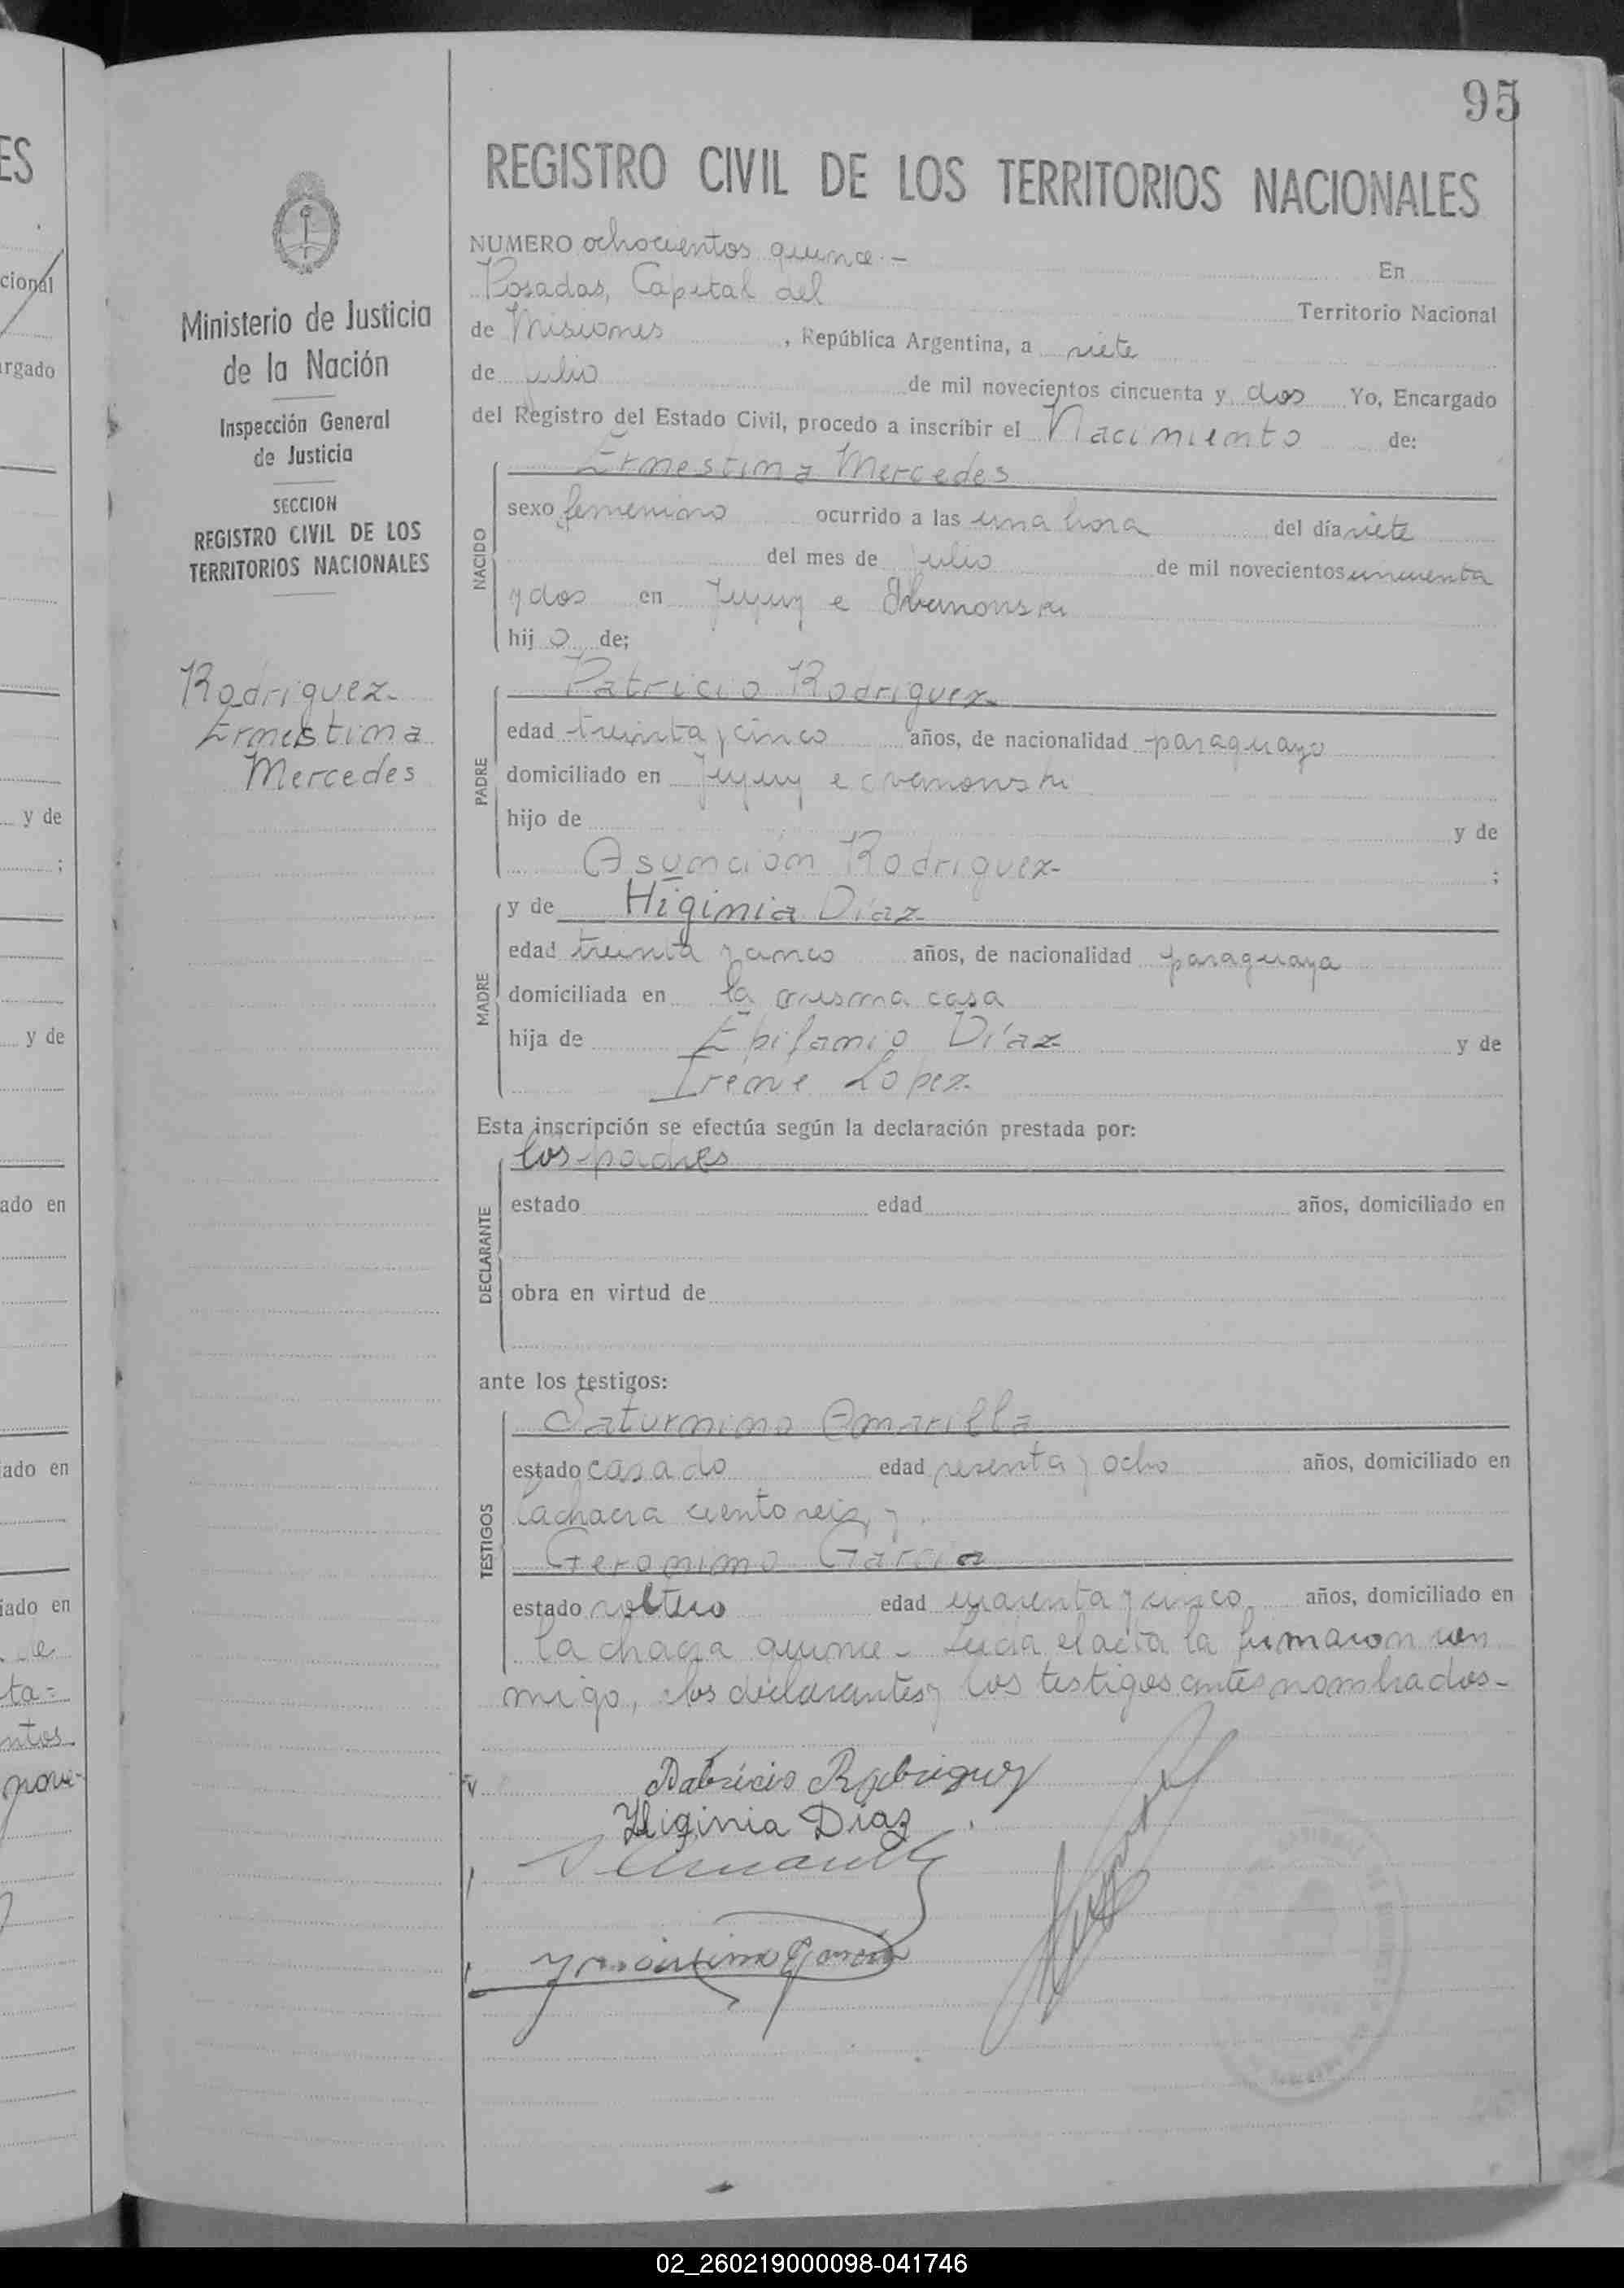 95
REGISTRO CIVIL DE LOS TERRITORIOS NACIONALES
Ministerio de Justicia
de la Nación
Inspección General
de Justicia
SECCION
REGISTRO CIVIL DE LOS
TERRITORIOS NACIONALES
Rodriguez
Ernestina
Mercedes
NUMERO ochocientos quince.- En
Posadas, Capital del Territorio Nacional
de Misiones, República Argentina, a siete
de julio de mil novecientos cincuenta y dos Yo, Encargado
del Registro del Estado Civil, procedo a inscribir el Nacimiento de:
NACIDO
Ernestina Mercedes
sexo femenino ocurrido a las una hora del día siete
del mes de julio de mil novecientos cincuenta
y dos en Jujuy e
hij o de;
PADRE
Patricio Rodriguez
edad treinta y cinco años, de nacionalidad paraguayo
domiciliado en Jujuy e
hijo de y de
Asunción Rodriguez ;
MADRE
y de Higinia Díaz
edad treinta y cinco años, de nacionalidad paraguaya
domiciliada en la misma casa
hija de Epifanio Díaz y de
Irene Lopez
Esta inscripción se efectúa según la declaración prestada por:
DECLARANTE
los padres
estado edad años, domiciliado en
obra en virtud de
ante los testigos:
TESTIGOS
Saturnino Amarilla
estado casado edad sesenta y ocho años, domiciliado en
la chacra ciento seis, y
Geronimo Garcia
estado soltero edad cuarenta y cinco años, domiciliado en
la chacra quince - Leida el acta la firmaron con
migo, los declarantes y los testigos antes nombrados -
Patricio Rodriguez
Higinia Diaz
02_260219000098-041746